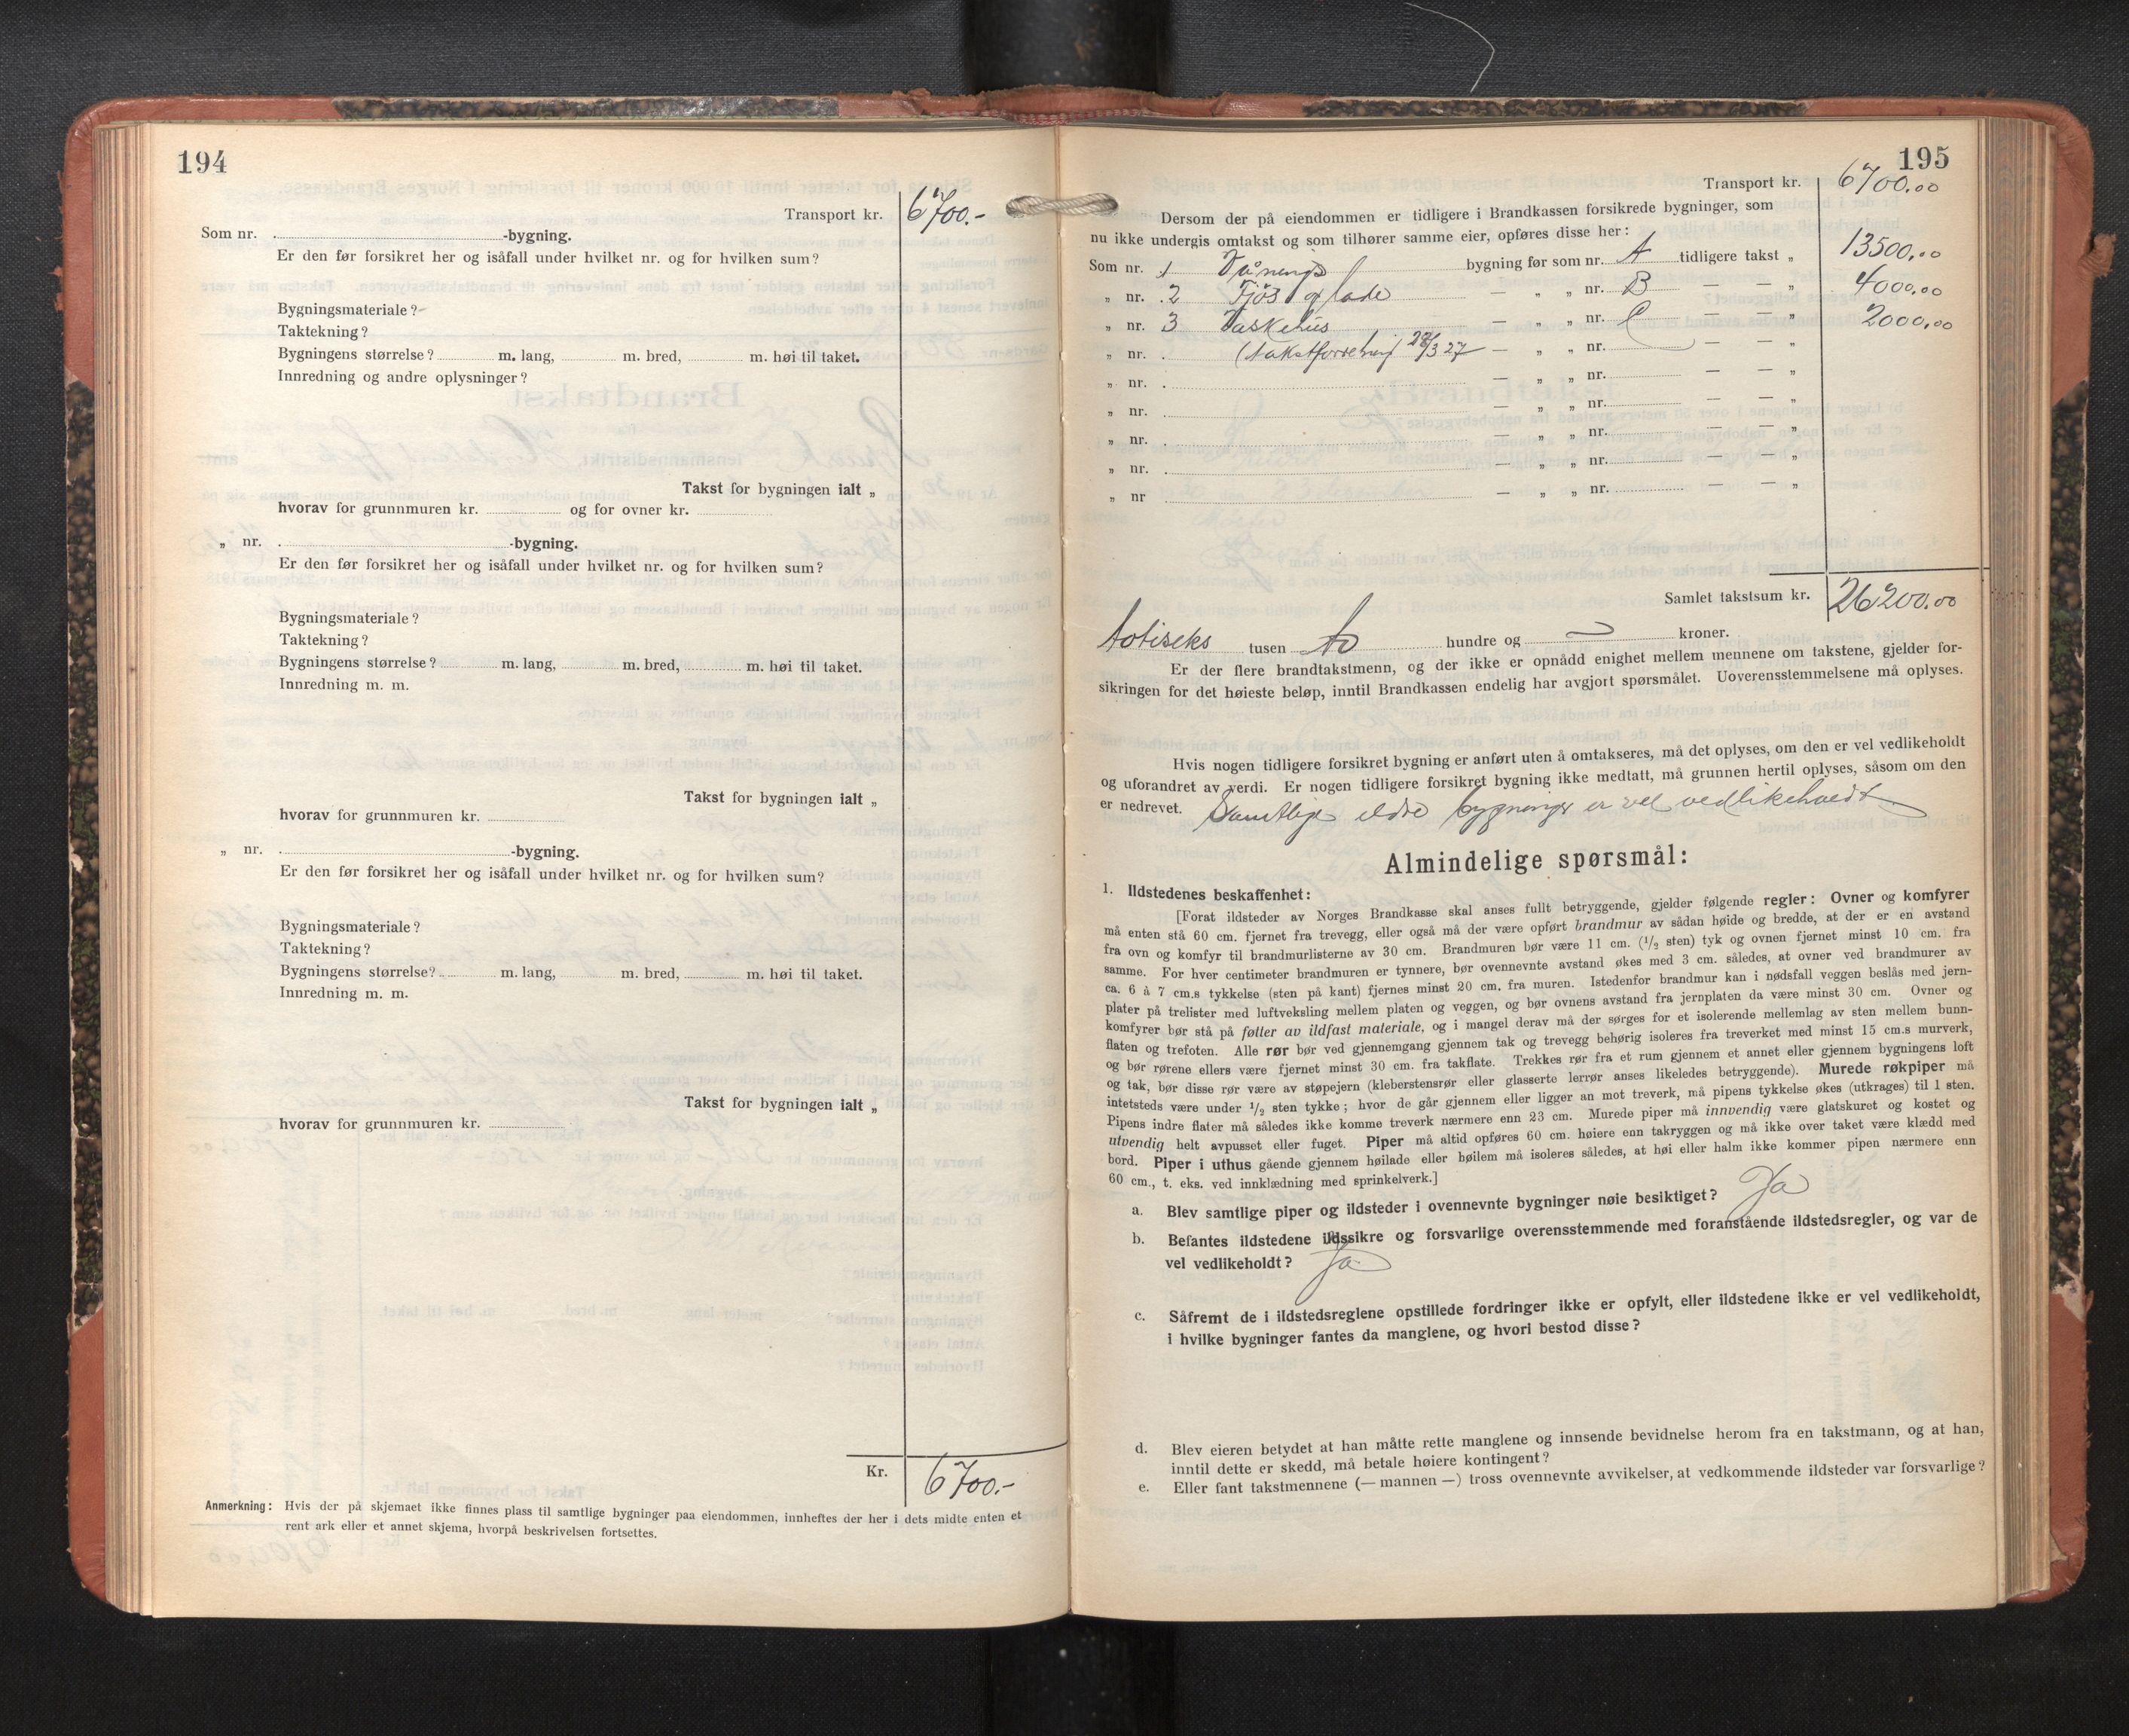 194
Transport kr. 6700.-
Som nr. -bygning.
Er den før forsikret her og isåfall under hvilket nr. og for hvilken sum?
Bygningsmateriale?
Taktekning?
Bygningens størrelse? m. lang, m. bred, m. høi til taket.
Innredning og andre oplysninger?
Takst for bygningen ialt „
hvorav for grunnmuren kr. og for ovner kr.
„ nr. -bygning.
Er den før forsikret her og isåfall under hvilket nr. og for hvilken sum?
Bygningsmateriale?
Taktekning?
Bygningens størrelse? m. lang, m. bred, m. høi til taket.
Innredning m. m.
Takst for bygningen ialt „
hvorav for grunnmuren kr.
„ nr. -bygning.
Er den før forsikret her og isåfall under hvilket nr. og for hvilken sum?
Bygningsmateriale?
Taktekning?
Bygningens størrelse? m. lang, m. bred, m. høi til taket.
Innredning m. m.
Takst for bygningen ialt „
hvorav for grunnmuren kr.
Kr. 6700.-
Anmerkning: Hvis der på skjemaet ikke finnes plass til samtlige bygninger paa eiendommen, innheftes der her i dets midte enten et
rent ark eller et annet skjema, hvorpå beskrivelsen fortsettes.
195
Transport kr. 6700.00
Dersom der på eiendommen er tidligere i Brandkassen forsikrede bygninger, som
nu ikke undergis omtakst og som tilhører samme eier, opføres disse her:
Som nr. 1 Vånings bygning før som nr. A tidligere takst „ 13500.00
„ nr. 2 Fjös og lade — „ „ nr. B — — „ 4000.00
„ nr. 3 Vaskehus — „ „ nr. C — — „ 2000.00
„ nr. (takstforretning 28/3 27 — „ „ nr. — — „
„ nr. — „ „ nr. — — „
„ nr. — „ „ nr. — — „
„ nr. — „ „ nr. — — „
„ nr. — „ „ nr. — — „
„ nr — „ „ nr. — — „
Samlet takstsum kr. 26200.00
totiseks tusen to hundre og — kroner.
Er der flere brandtakstmenn, og der ikke er opnådd enighet mellem mennene om takstene, gjelder for-
sikringen for det høieste beløp, inntil Brandkassen endelig har avgjort spørsmålet. Uoverensstemmelsene må oplyses.
Hvis nogen tidligere forsikret bygning er anført uten å omtakseres, må det oplyses, om den er vel vedlikeholdt
og uforandret av verdi. Er nogen tidligere forsikret bygning ikke medtatt, må grunnen hertil oplyses, såsom om den
er nedrevet. Samtlige eldre bygninger er vel vedlikeholdt
Almindelige spørsmål:
1. Ildstedenes beskaffenhet:
[Forat ildsteder av Norges Brandkasse skal anses fullt betryggende, gjelder følgende regler: Ovner og komfyrer
må enten stå 60 cm. fjernet fra trevegg, eller også må der være opført brandmur av sådan høide og bredde, at der er en avstand
fra ovn og komfyr til brandmurlisterne av 30 cm. Brandmuren bør være 11 cm. (1/2 sten) tyk og ovnen fjernet minst 10 cm. fra
samme. For hver centimeter brandmuren er tynnere, bør ovennevnte avstand økes med 3 cm. således, at ovner ved brandmurer av
ca. 6 à 7 cm.s tykkelse (sten på kant) fjernes minst 20 cm. fra muren. Istedenfor brandmur kan i nødsfall veggen beslås med jern-
plater på trelister med luftveksling mellem platen og veggen, og bør ovnens avstand fra jernplaten da være minst 30 cm. Ovner og
komfyrer bør stå på føtter av ildfast materiale, og i mangel derav må der sørges for et isolerende mellemlag av sten mellem bunn-
flaten og trefoten. Alle rør bør ved gjennemgang gjennem tak og trevegg behørig isoleres fra treverket med minst 15 cm.s murverk,
og bør rørene ellers være fjernet minst 30 cm. fra takflate. Trekkes rør fra et rum gjennem et annet eller gjennem bygningens loft
og tak, bør disse rør være av støpejern (kleberstensrør eller glasserte lerrør anses likeledes betryggende). Murede røkpiper må
intetsteds være under 1/2 sten tykke; hvor de går gjennem eller ligger an mot treverk, må pipens tykkelse økes (utkrages) til 1 sten.
Pipens indre flater må således ikke komme treverk nærmere enn 23 cm. Murede piper må innvendig være glatskuret og kostet og
utvendig helt avpusset eller fuget. Piper må altid opføres 60 cm. høiere enn takryggen og må ikke over taket være klædd med
bord. Piper i uthus gående gjennem høilade eller høilem må isoleres således, at høi eller halm ikke kommer pipen nærmere enn
60 cm., t. eks. ved innklædning med sprinkelverk.]
a. Blev samtlige piper og ildsteder i ovennevnte bygninger nøie besiktiget? Ja
b. Befantes ildstedene ildssikre og forsvarlige overensstemmende med foranstående ildstedsregler, og var de
vel vedlikeholdt? Ja
c. Såfremt de i ildstedsreglene opstillede fordringer ikke er opfylt, eller ildstedene ikke er vel vedlikeholdt,
i hvilke bygninger fantes da manglene, og hvori bestod disse?
d. Blev eieren betydet at han måtte rette manglene og innsende bevidnelse herom fra en takstmann, og at han,
inntil dette er skedd, må betale høiere kontingent?
e. Eller fant takstmennene (— mannen —) tross ovennevnte avvikelser, at vedkommende ildsteder var forsvarlige?